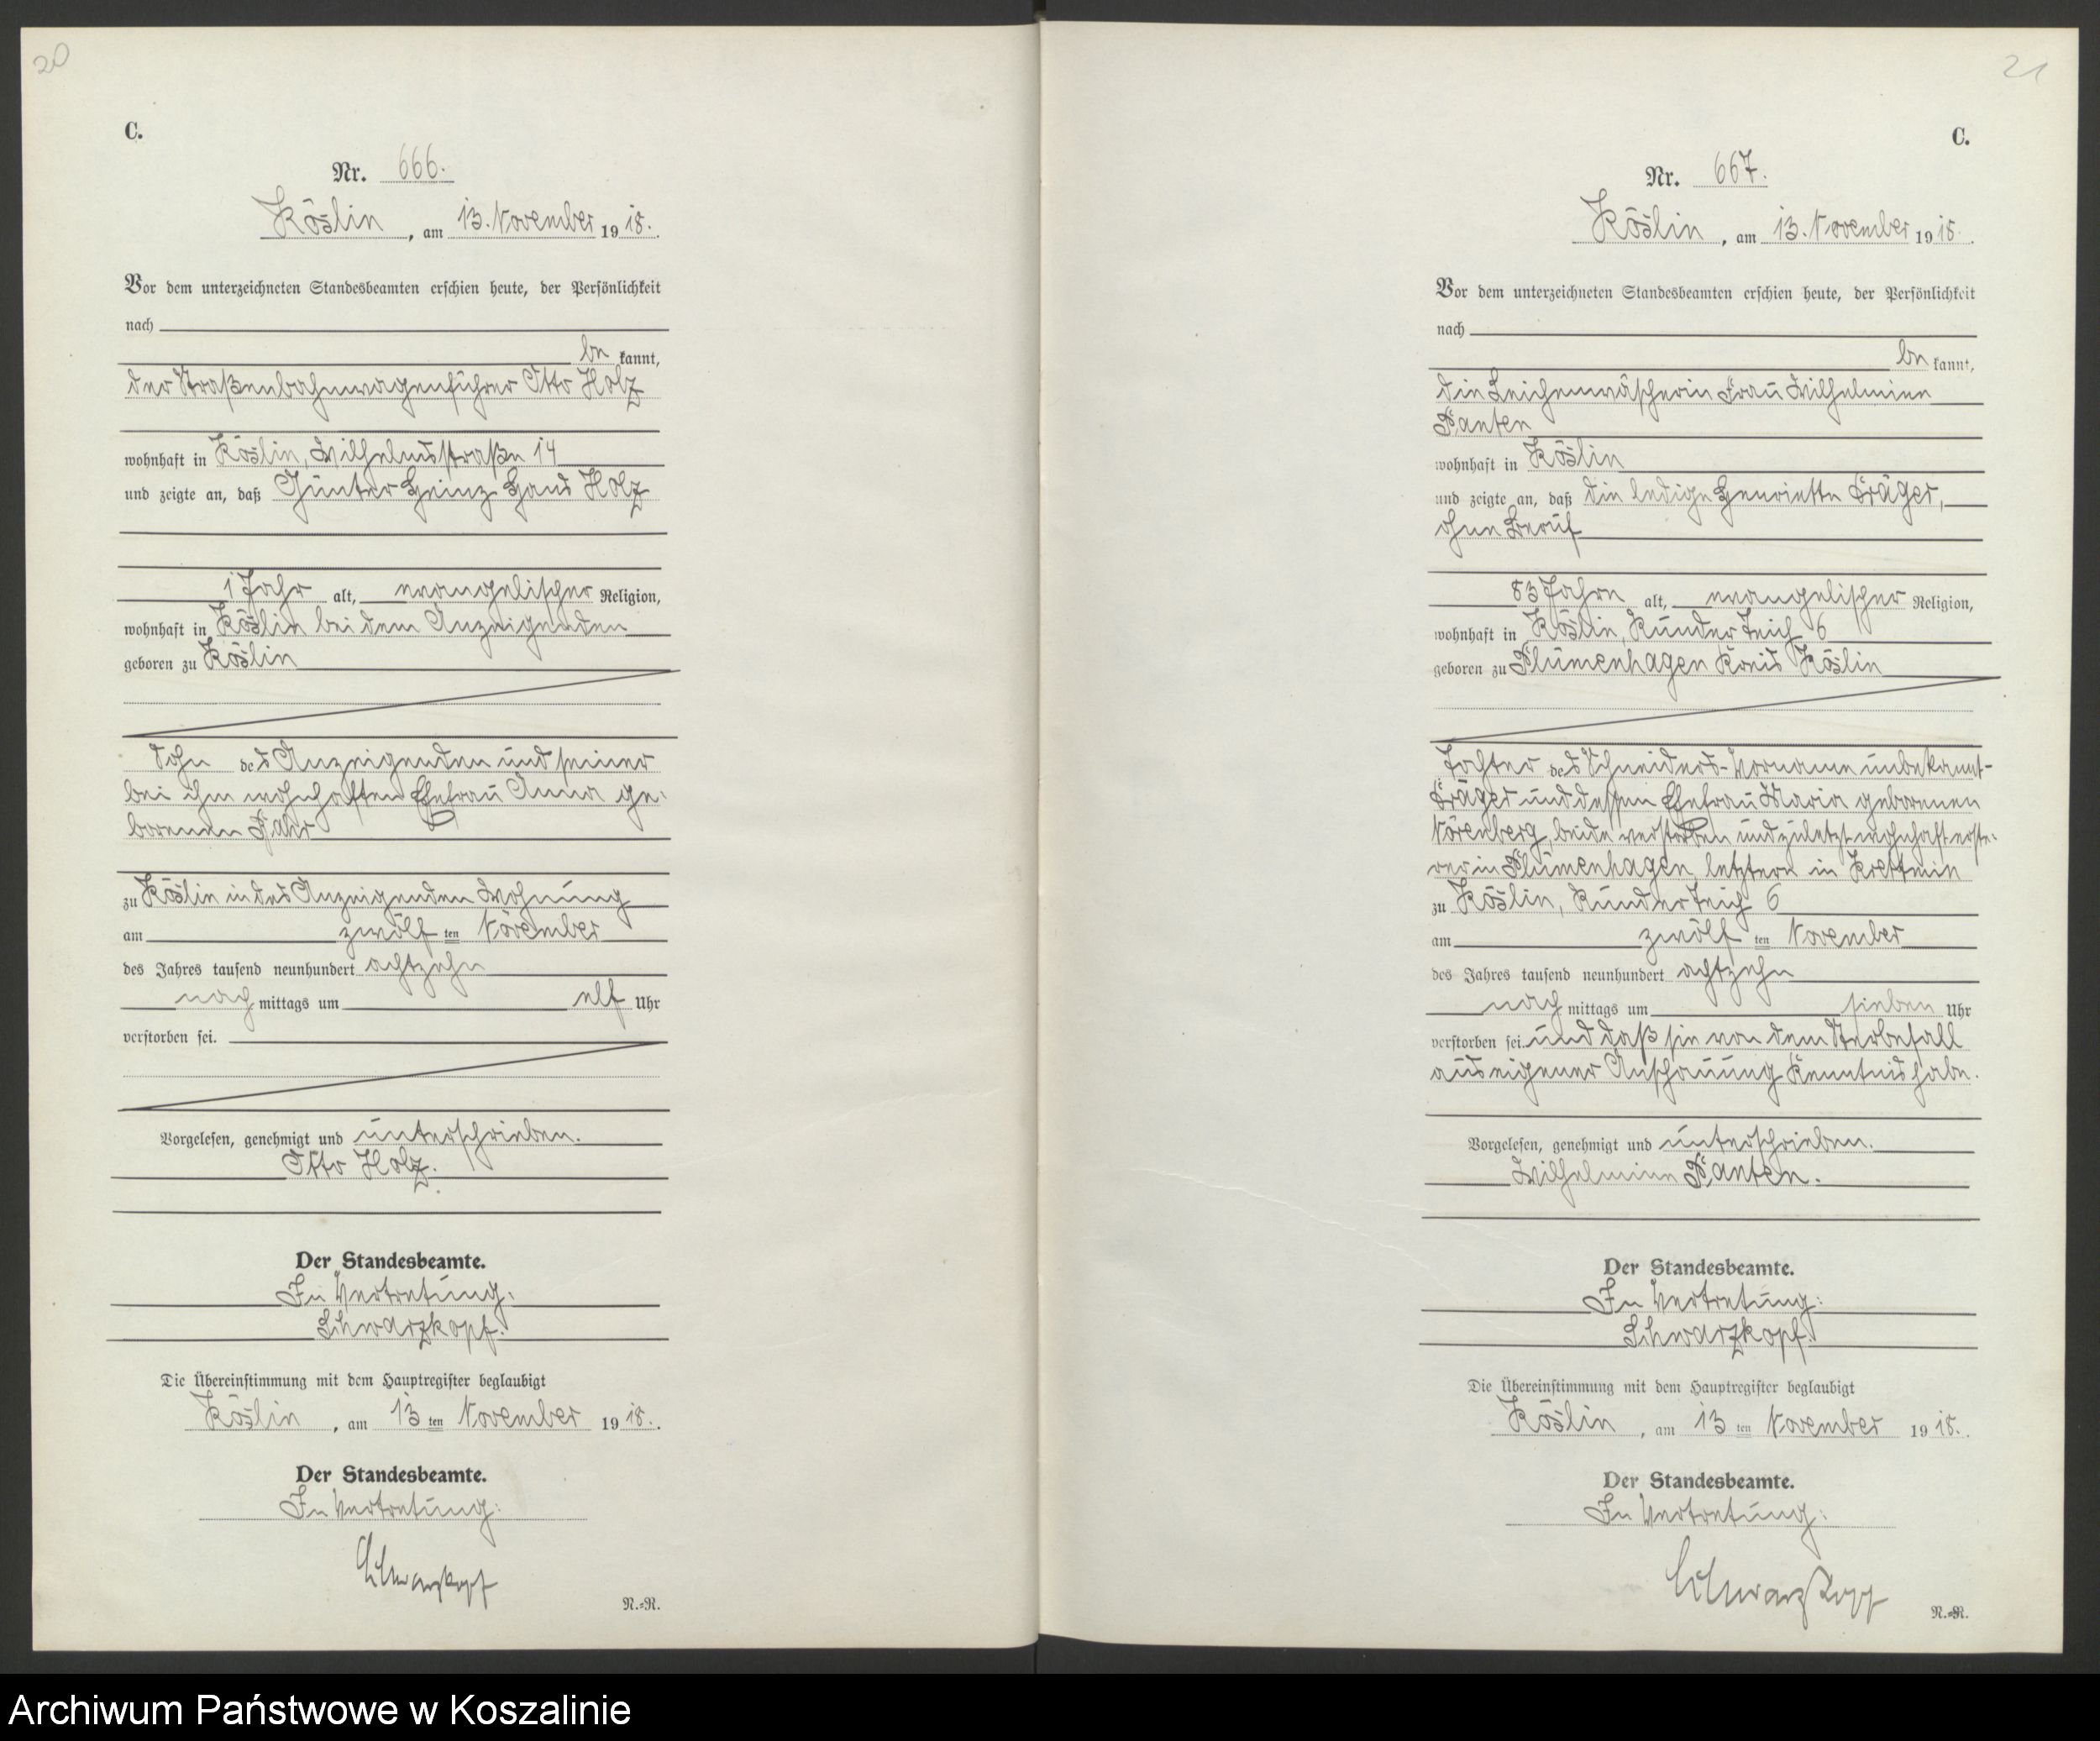 20
C.
Nr. 666.
Köslin, am 13. November 1918.
Vor dem unterzeichneten Standesbeamten erschien heute, der Persönlichkeit
nach
be kannt,
der Straßenbahnwagenführer Otto Holz
wohnhaft in Köslin, Wilhelmsstraße 14
und zeigte an, daß Günter Heinz Hans Holz
1 Jahr alt, evangelischer Religion,
wohnhaft in Köslin bei dem Anzeigenden
geboren zu Köslin
Sohn des Anzeigenden und seiner
bei ihm wohnhaften Ehefrau Anna ge-
borenen
zu Köslin in des Anzeigenden Wohnung
am zwölf ten November
des Jahres tausend neunhundert achtzehn
nach mittags um elf Uhr
verstorben sei.
Vorgelesen, genehmigt und unterschrieben.
Otto Holz.
Der Standesbeamte.
In Vertretung:
Schwarzkopf.
Die Übereinstimmung mit dem Hauptregister beglaubigt
Köslin, am 13 ten November 1918.
Der Standesbeamte.
In Vertretung:
Schwarzkopf
N.=R.
21
C.
Nr. 667.
Köslin, am 13. November 1918.
Vor dem unterzeichneten Standesbeamten erschien heute, der Persönlichkeit
nach
be kannt,
die Leichenwäscherin Frau Wilhelmine
Panten
wohnhaft in Köslin
und zeigte an, daß die ledige Henriette Kräger,
ohne Beruf
83 Jahre alt, evangelischer Religion,
wohnhaft in Köslin, Runder Teich 6
geboren zu Plümenhagen Kreis Köslin
Tochter des Schneiders - Vorname unbekannt -
Kräger und dessen Ehefrau Maria geborenen
Nörenberg, beide verstorben und zuletzt wohnhaft erste-
rer in Plümenhagen, letztere in Krettmin
zu Köslin, Runder Teich 6
am zwölf ten November
des Jahres tausend neunhundert achtzehn
nach mittags um sieben Uhr
verstorben sei und daß sie von dem Sterbefall
aus eigener Anschauung Kenntnis habe.
Vorgelesen, genehmigt und unterschrieben.
Wilhelmine Panten.
Der Standesbeamte.
In Vertretung:
Schwarzkopf.
Die Übereinstimmung mit dem Hauptregister beglaubigt
Köslin, am 13 ten November 1918.
Der Standesbeamte.
In Vertretung:
Schwarzkopf
N.=R.
Archiwum Państwowe w Koszalinie